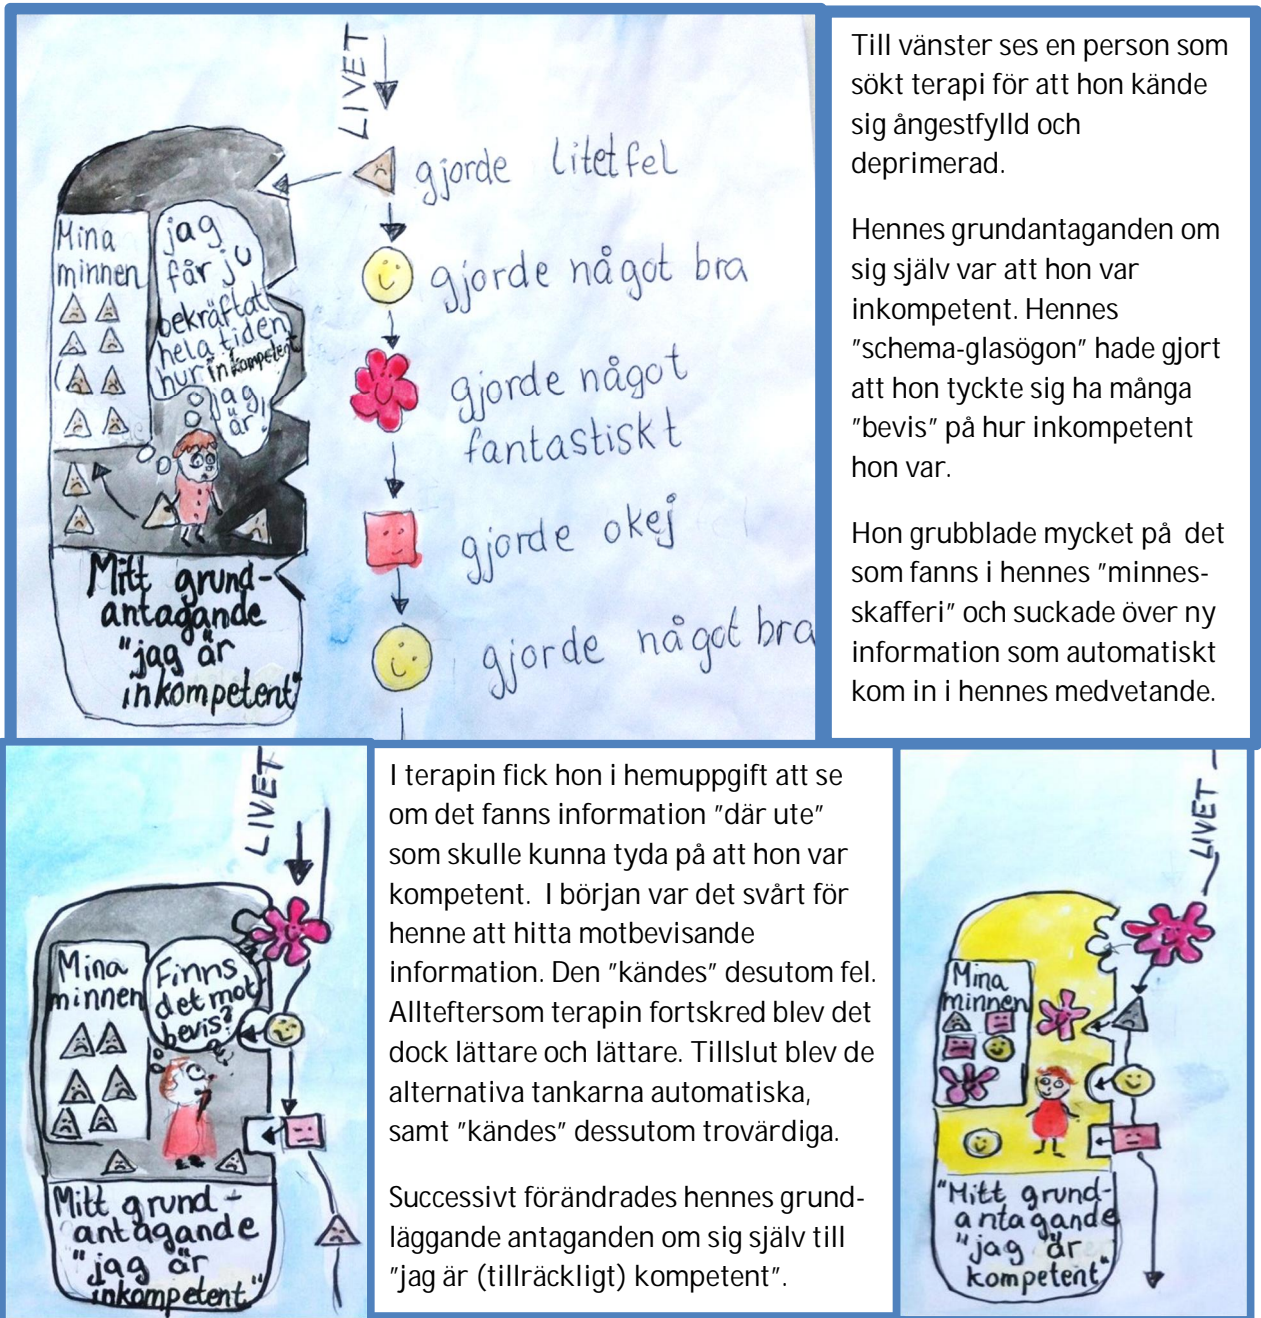 LIVET
gjorde litet fel
gjorde något bra
gjorde något
fantastiskt
gjorde okej
gjorde något bra
Mina
minnen
jag
får ju
bekräftat
hela tiden
hur inkompetent
jag
är!
Mitt grund-
antagande
"jag är
inkompetent"
Till vänster ses en person som
sökt terapi för att hon kände
sig ångestfylld och
deprimerad.
Hennes grundantaganden om
sig själv var att hon var
inkompetent. Hennes
"schema-glasögon" hade gjort
att hon tyckte sig ha många
"bevis" på hur inkompetent
hon var.
Hon grubblade mycket på det
som fanns i hennes "minnes-
skafferi" och suckade över ny
information som automatiskt
kom in i hennes medvetande.
LIVET
Mina
minnen
Finns
det mot
bevis?
Mitt grund-
antagande
"jag är
inkompetent"
I terapin fick hon i hemuppgift att se
om det fanns information "där ute"
som skulle kunna tyda på att hon var
kompetent. I början var det svårt för
henne att hitta motbevisande
information. Den "kändes" desutom fel.
Allteftersom terapin fortskred blev det
dock lättare och lättare. Tillslut blev de
alternativa tankarna automatiska,
samt "kändes" dessutom trovärdiga.
Successivt förändrades hennes grund-
läggande antaganden om sig själv till
"jag är (tillräckligt) kompetent".
LIVET
Mina
minnen
"Mitt grund-
antagande
"jag är
kompetent"